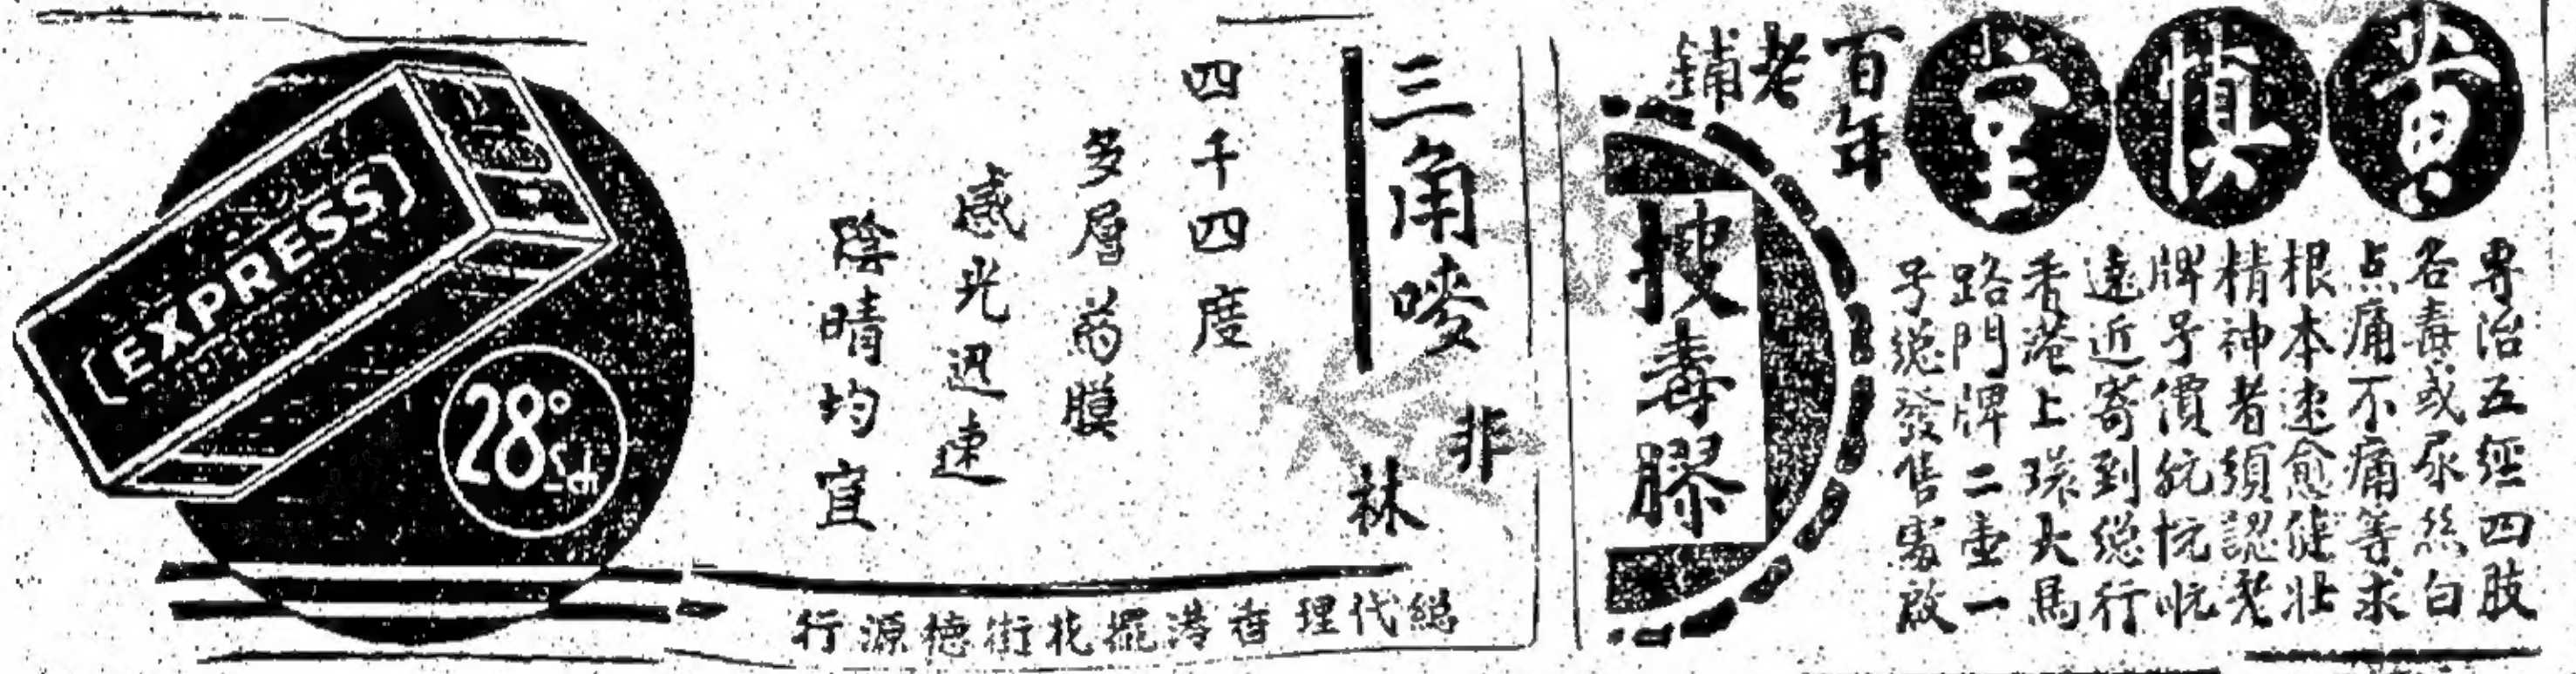 黄慎堂
百年老鋪
搜毒膠
專治五經四肢
各毒或尿絲白
点痛不痛等求
根本速愈健壯
精神者須認老
牌子價
遠近寄到總行
香港上環大馬
路門牌二壹一
号總發售處啟
三角嘜
非林
四千四度
多層药膜
感光迅速
陰晴均宜
總代理香港擺花街德源行
(EXPRESS)
28° Sch